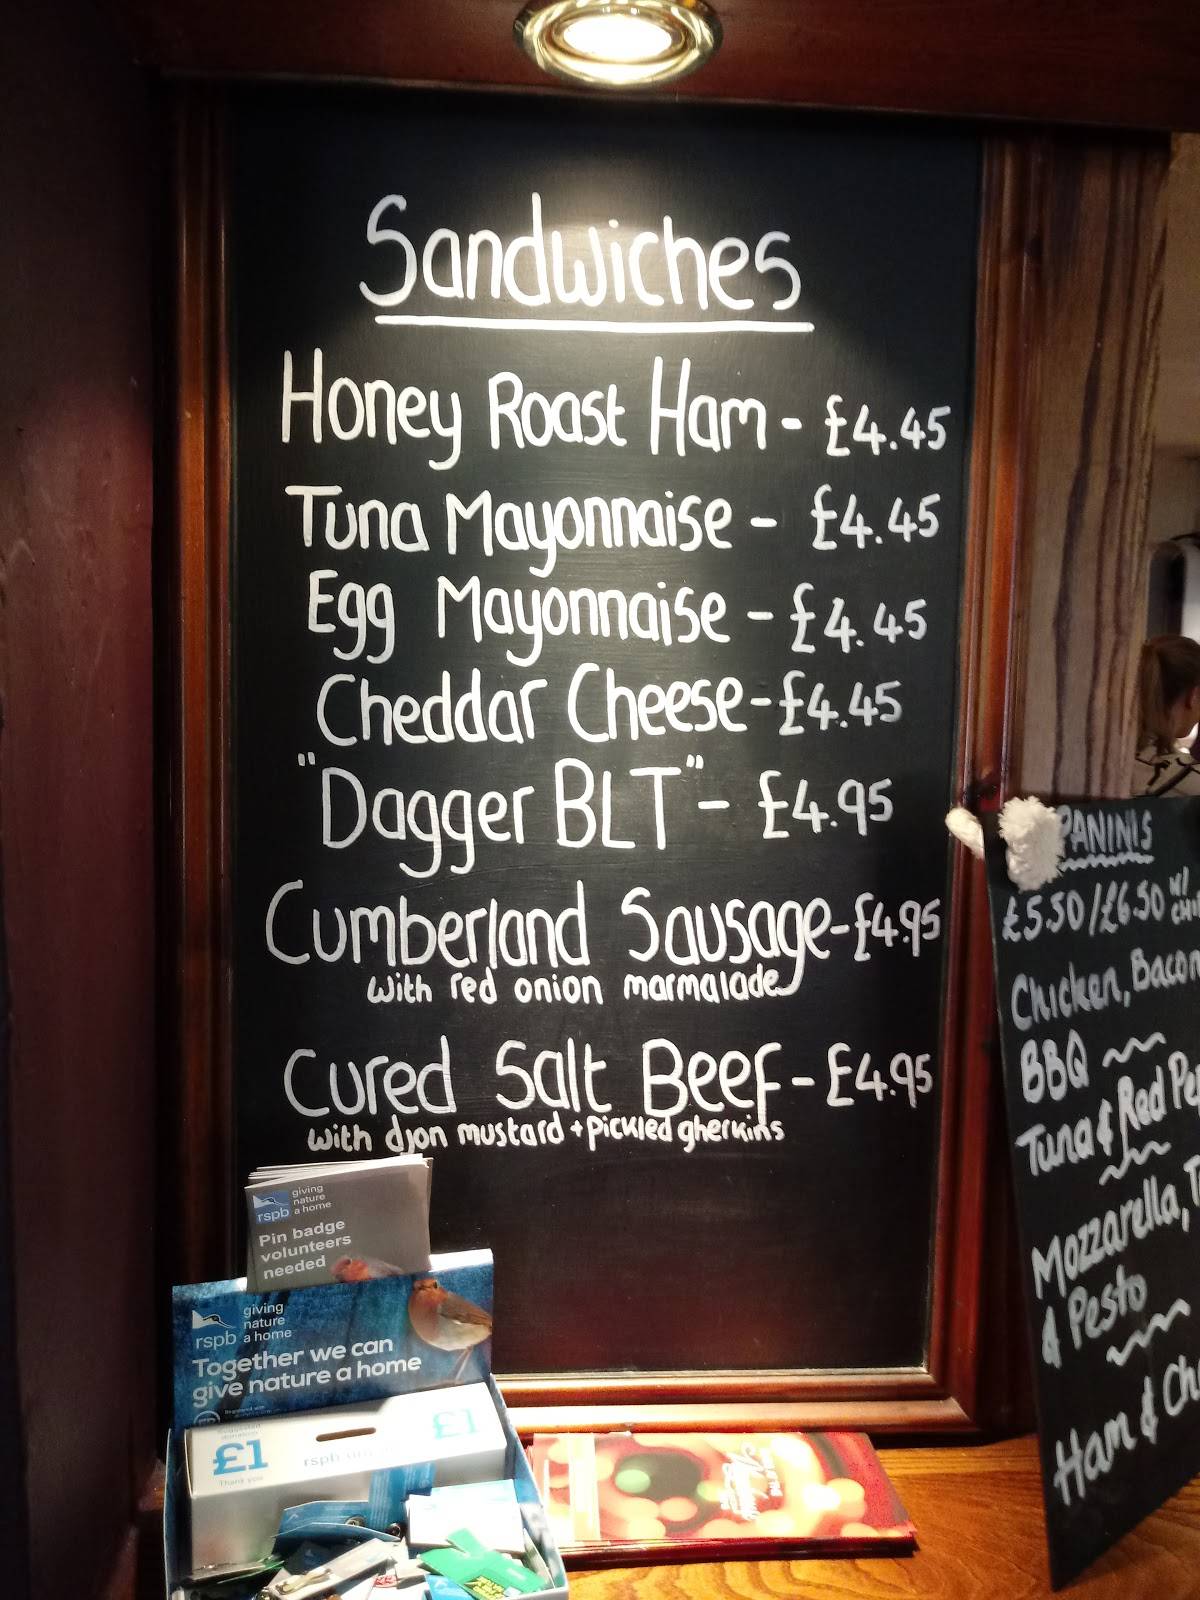 Sandwiches
Honey Roast Ham - £4.45
Tuna Mayonnaise - £4.45
Egg Mayonnaise - £4.45
Cheddar Cheese - £4.45
"Dagger BLT" - £4.95
Cumberland Sausage - £4.95
with red onion marmalade
Cured Salt Beef - £4.95
with djon mustard + pickled gherkins
PANINIS
£5.50/£6.50 w/
Chicken, Bacon
BBQ
Tuna & Red
Mozzarella,
& Pesto
Ham &
giving
nature
a home
rspb
Pin badge
volunteers
needed
giving
nature
a home
rspb
Together we can
give nature a home
Suggested
donation
£1
Thank you
£1